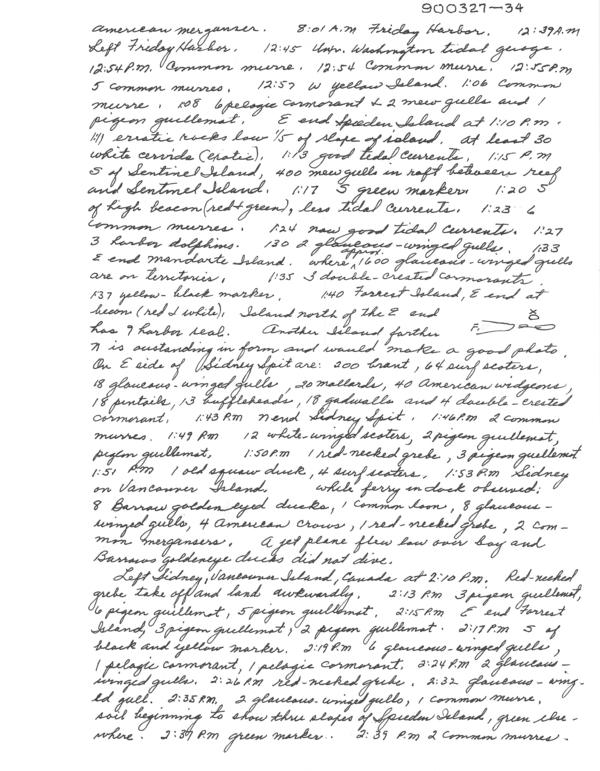 900327-34
american merganser. 8:01 A.M Friday Harbor. 12:39 A.M
Left Friday Harbor. 12:45 Univ. Washington tidal guage.
12:54 P.M. Common murre. 12:54 Common murre. 12:55 P.M
5 common murres. 12:57 W yellow Island. 1:06 Common
murre. 1:08 6 pelagic cormorant & 2 mew gulls and 1
pigeon guillemot. E end Spieden Island at 1:10 P.M.
1:11 erratic rocks low 1/5 of slope of island. at least 30
white cervids (exotic). 1:13 good tidal currents. 1:15 P.M
S of Sentinel Island, 400 mew gulls in raft between reef
and Sentinel Island. 1:17 S green marker. 1:20 S
of high beacon (red & green), less tidal currents. 1:23 6
common murres. 1:24 now good tidal currents. 1:27
3 harbor dolphins. 130 2 glaucous-winged gulls. 1:33
E end Mandarte Island. where approx. 1600 glaucous-winged gulls
are on territories. 1:35 3 double-crested cormorants.
1:37 yellow-black marker. 1:40 Forrest Island, E end at
becon (red & white). Island north of the E end
has 9 harbor seal. Another Island farther F.
N is austanding in form and would make a good photo.
On E side of Sidney Spit are: 200 brant, 64 surf scoters,
18 glaucous-winged gulls, 20 mallards, 40 American widgeons,
18 pintails, 13 buffleheads, 18 gadwalls and 4 double-crested
cormorant. 1:43 P.M N end Sidney Spit. 1:46 P.M 2 common
murres. 1:49 P.M 12 white-winged scoters, 2 pigeon guillemot,
pigeon guillemot. 1:50 P.M 1 red-necked grebe, 3 pigeon guillemot
1:51 P.M 1 old squaw duck, 4 surf scoters. 1:53 P.M Sidney
on Vancouver Island. while ferry in dock observed:
8 Barrow golden eyed ducks, 1 common loon, 8 glaucous-
winged gulls, 4 American crows, 1 red-necked grebe, 2 com-
mon mergansers. A jet plane flew low over bay and
Barrows goldeneye ducks did not dive.
Left Sidney, Vancouver Island, Canada at 2:10 P.M. Red-necked
grebe take off and land awkwardly. 2:13 P.M 3 pigeon guillemot,
6 pigeon guillemot, 5 pigeon guillemot. 2:15 P.M E end Forrest
Island, 3 pigeon guillemot, 2 pigeon guillemot. 2:17 P.M S of
black and yellow marker. 2:19 P.M 6 glaucous-winged gulls,
1 pelagic cormorant, 1 pelagic cormorant. 2:24 P.M 2 glaucous-
winged gulls. 2:26 P.M red-necked grebe. 2:32 glaucous-wing-
ed gull. 2:35 P.M. 2 glaucous-winged gulls, 1 common murre.
soil beginning to show thru slopes of Spieden Island, green else-
where. 2:37 P.M green marker. 2:39 P.M 2 Common murres.